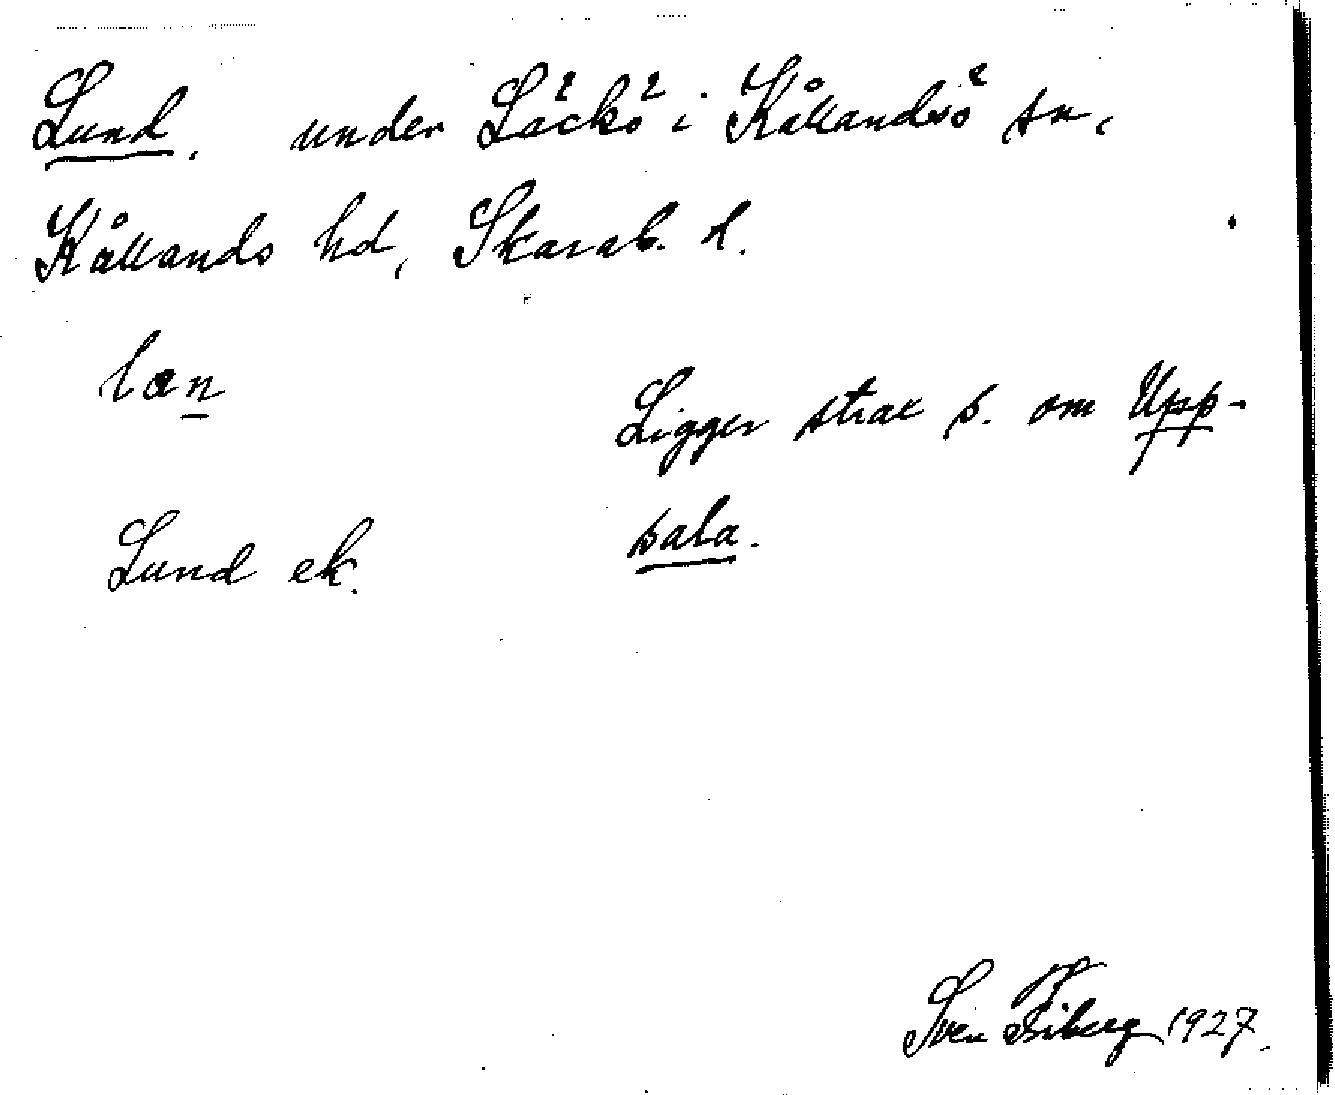 Lund, under Läckö i Kållandsö sn,
Kållands hd, Skarab. l.
lan
Ligger strax s. om Upp-
sala.
Lund ek.
Sven Friberg 1927.